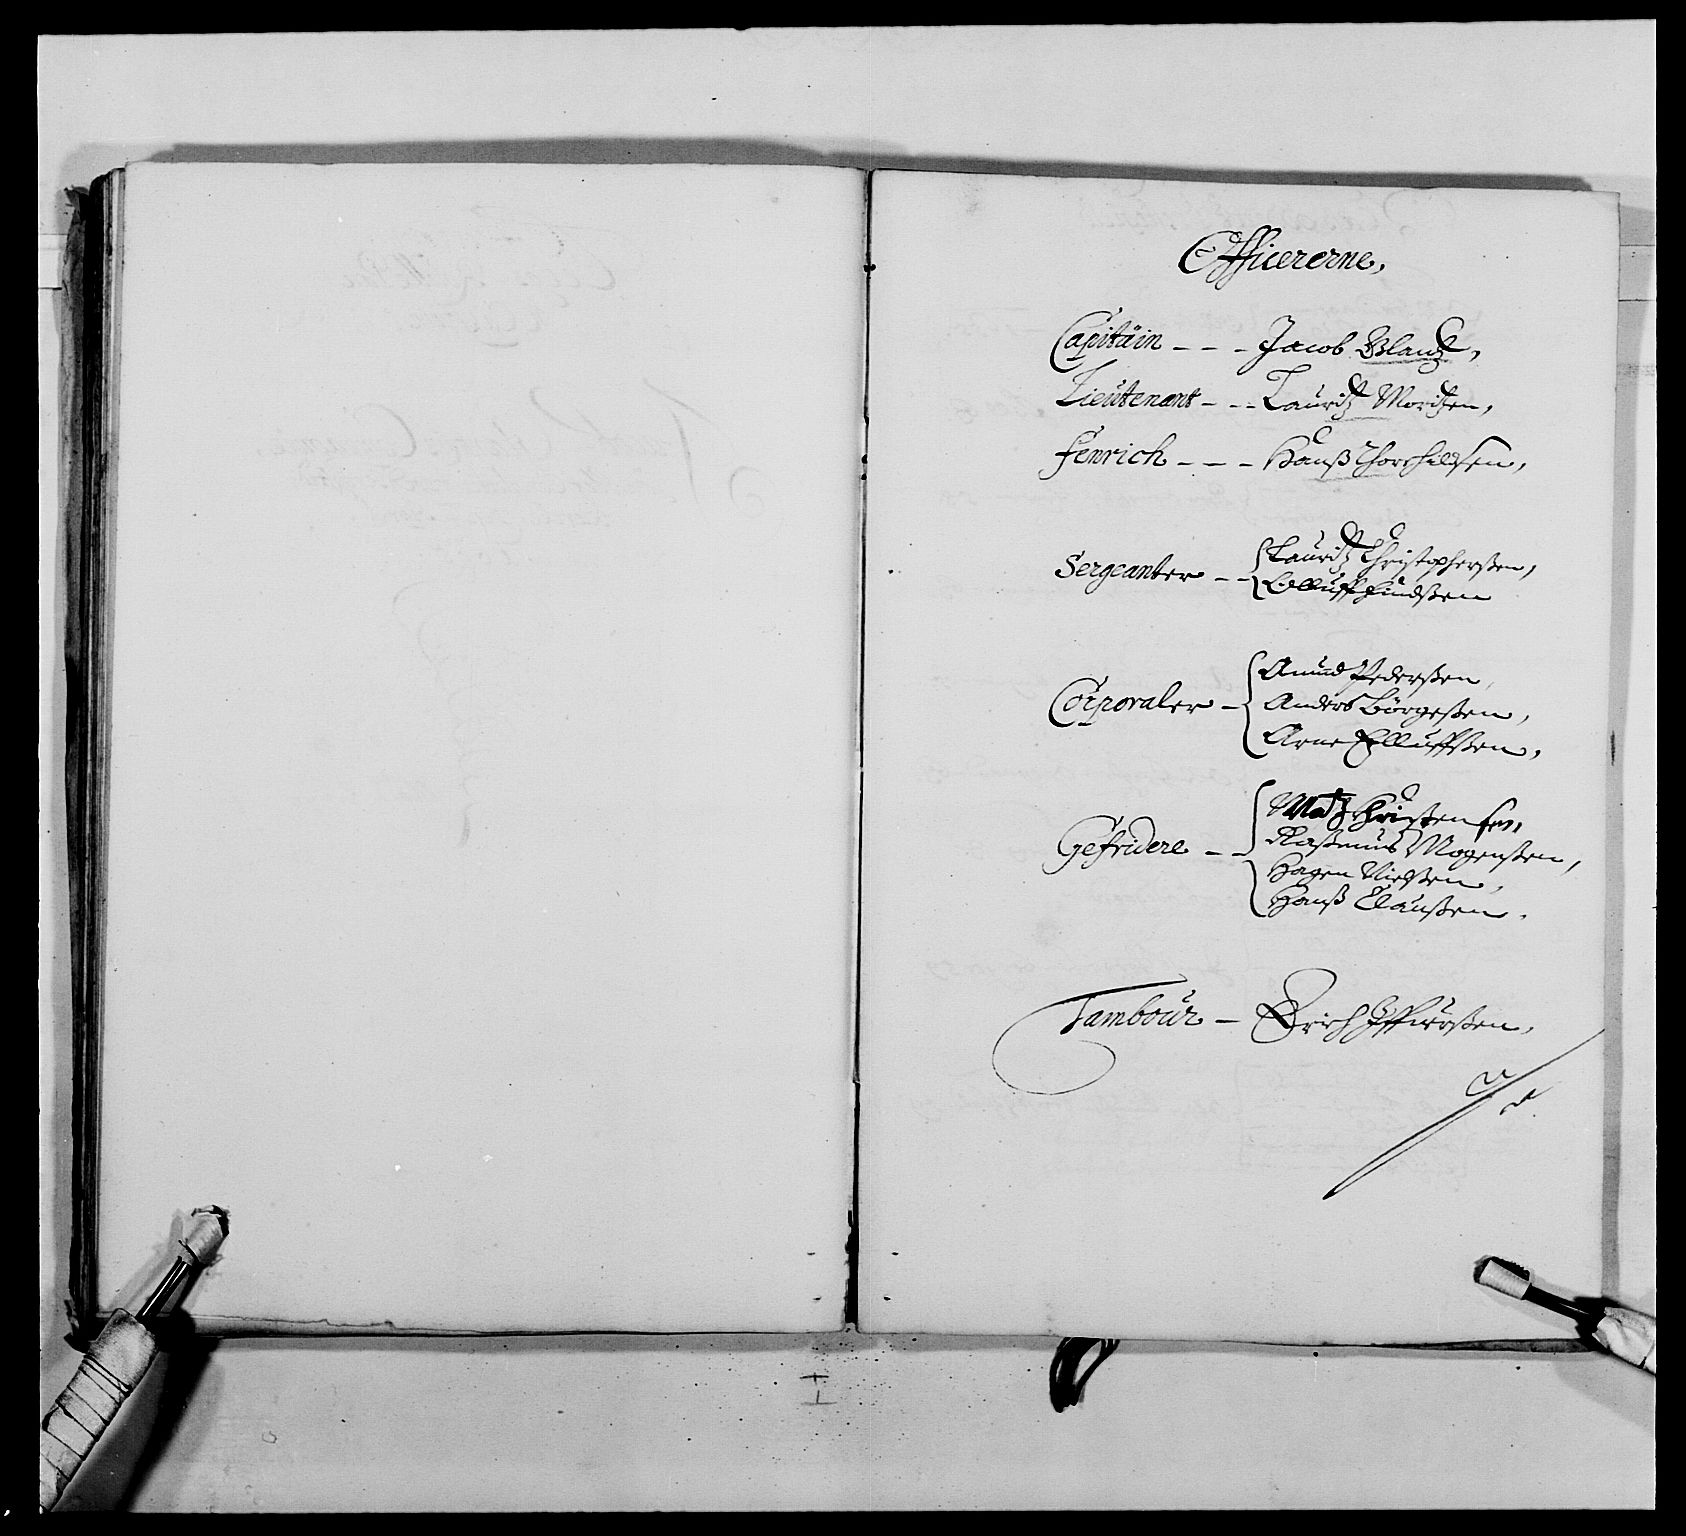 Officererne,
Capitäin - - - Jacob Blantz,
Lieutenant - - - Lauritz Moritzen,
Fenrich - - - Hanß Thorchildsen,
Sergeanter - - Lauritz Christopherßen,
Olluff Findßen
Corporaler - Amund Pederßen,
Anders Börgeßen,
Arne Elluffßen,
Gefridere - - Matz Christensen,
Raßmus Mogenßen,
Hagen Nielßen,
Hanß Claußen.
Tambour - Erich